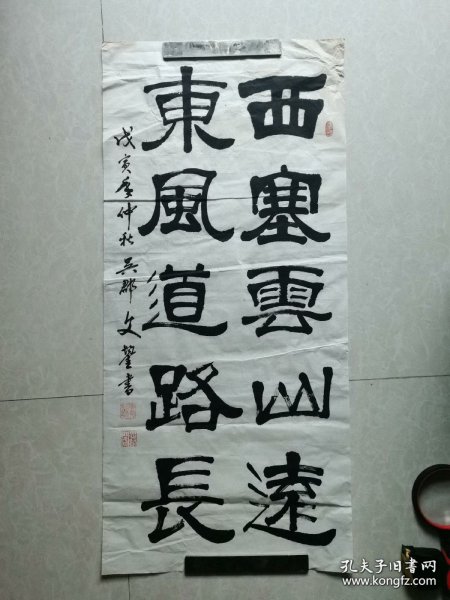 西塞雲山遠
東風道路長
戊寅年仲秋吴郡文
書
孔夫子旧书网
www.kongfz.com